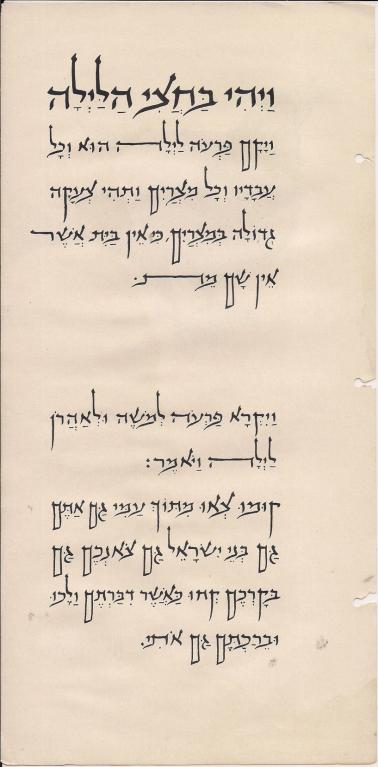 וַיְהִי בַּחֲצִי הַלַּיְלָה
וַיָּקָם פַּרְעֹה לַיְלָה הוּא וְכָל
עֲבָדָיו וְכָל מִצְרַיִם וַתְּהִי צְעָקָה
גְדוֹלָה בְּמִצְרַיִם, כִּי אֵין בַּיִת אֲשֶׁר
אֵין שָׁם מֵת.
וַיִּקְרָא פַּרְעֹה לְמֹשֶׁה וּלְאַהֲרֹן
לַיְלָה וַיֹּאמֶר:
קוּמוּ צְאוּ מִתּוֹךְ עַמִּי גַּם אַתֶּם
גַּם בְּנֵי יִשְׂרָאֵל גַּם צֹאנְכֶם גַּם
בְּקַרְכֶם קְחוּ כַּאֲשֶׁר דִּבַּרְתֶּם וָלֵכוּ
וּבֵרַכְתֶּם גַּם אֹתִי.